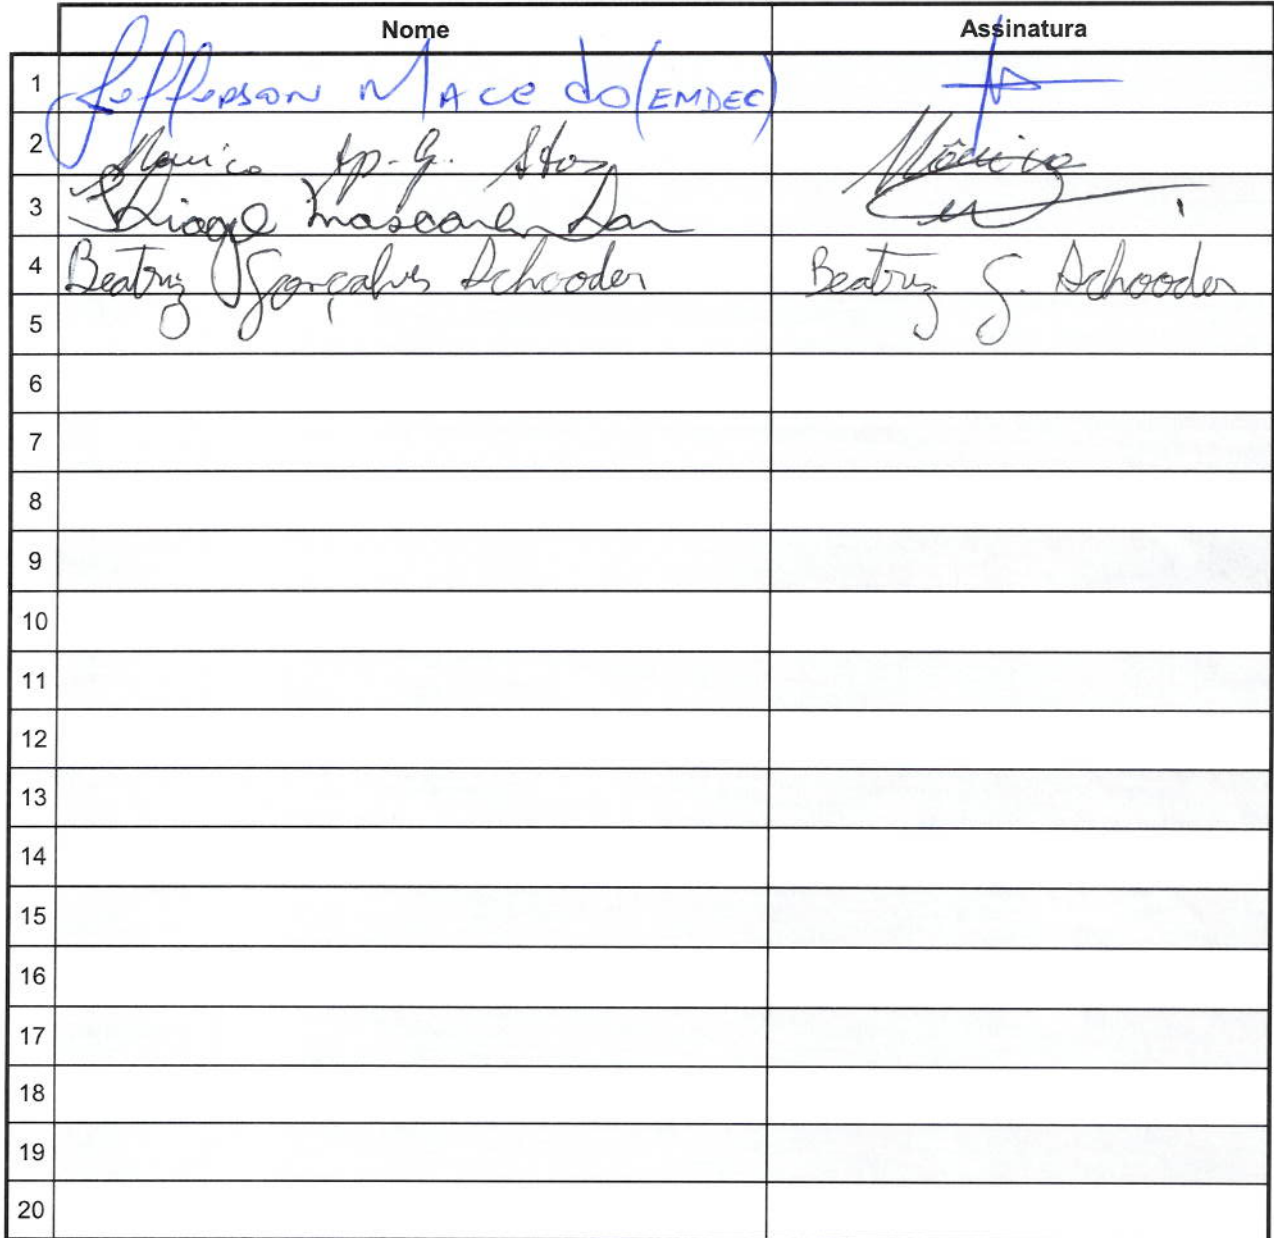 Nome Assinatura
1 Jefferson Macedo (EMDEC)
2 Monica Ap. G. Stos Mônica
3 Thiago Mascarenhas
4 Beatriz Gonçalves Schooder Beatriz G. Schooder
5
6
7
8
9
10
11
12
13
14
15
16
17
18
19
20